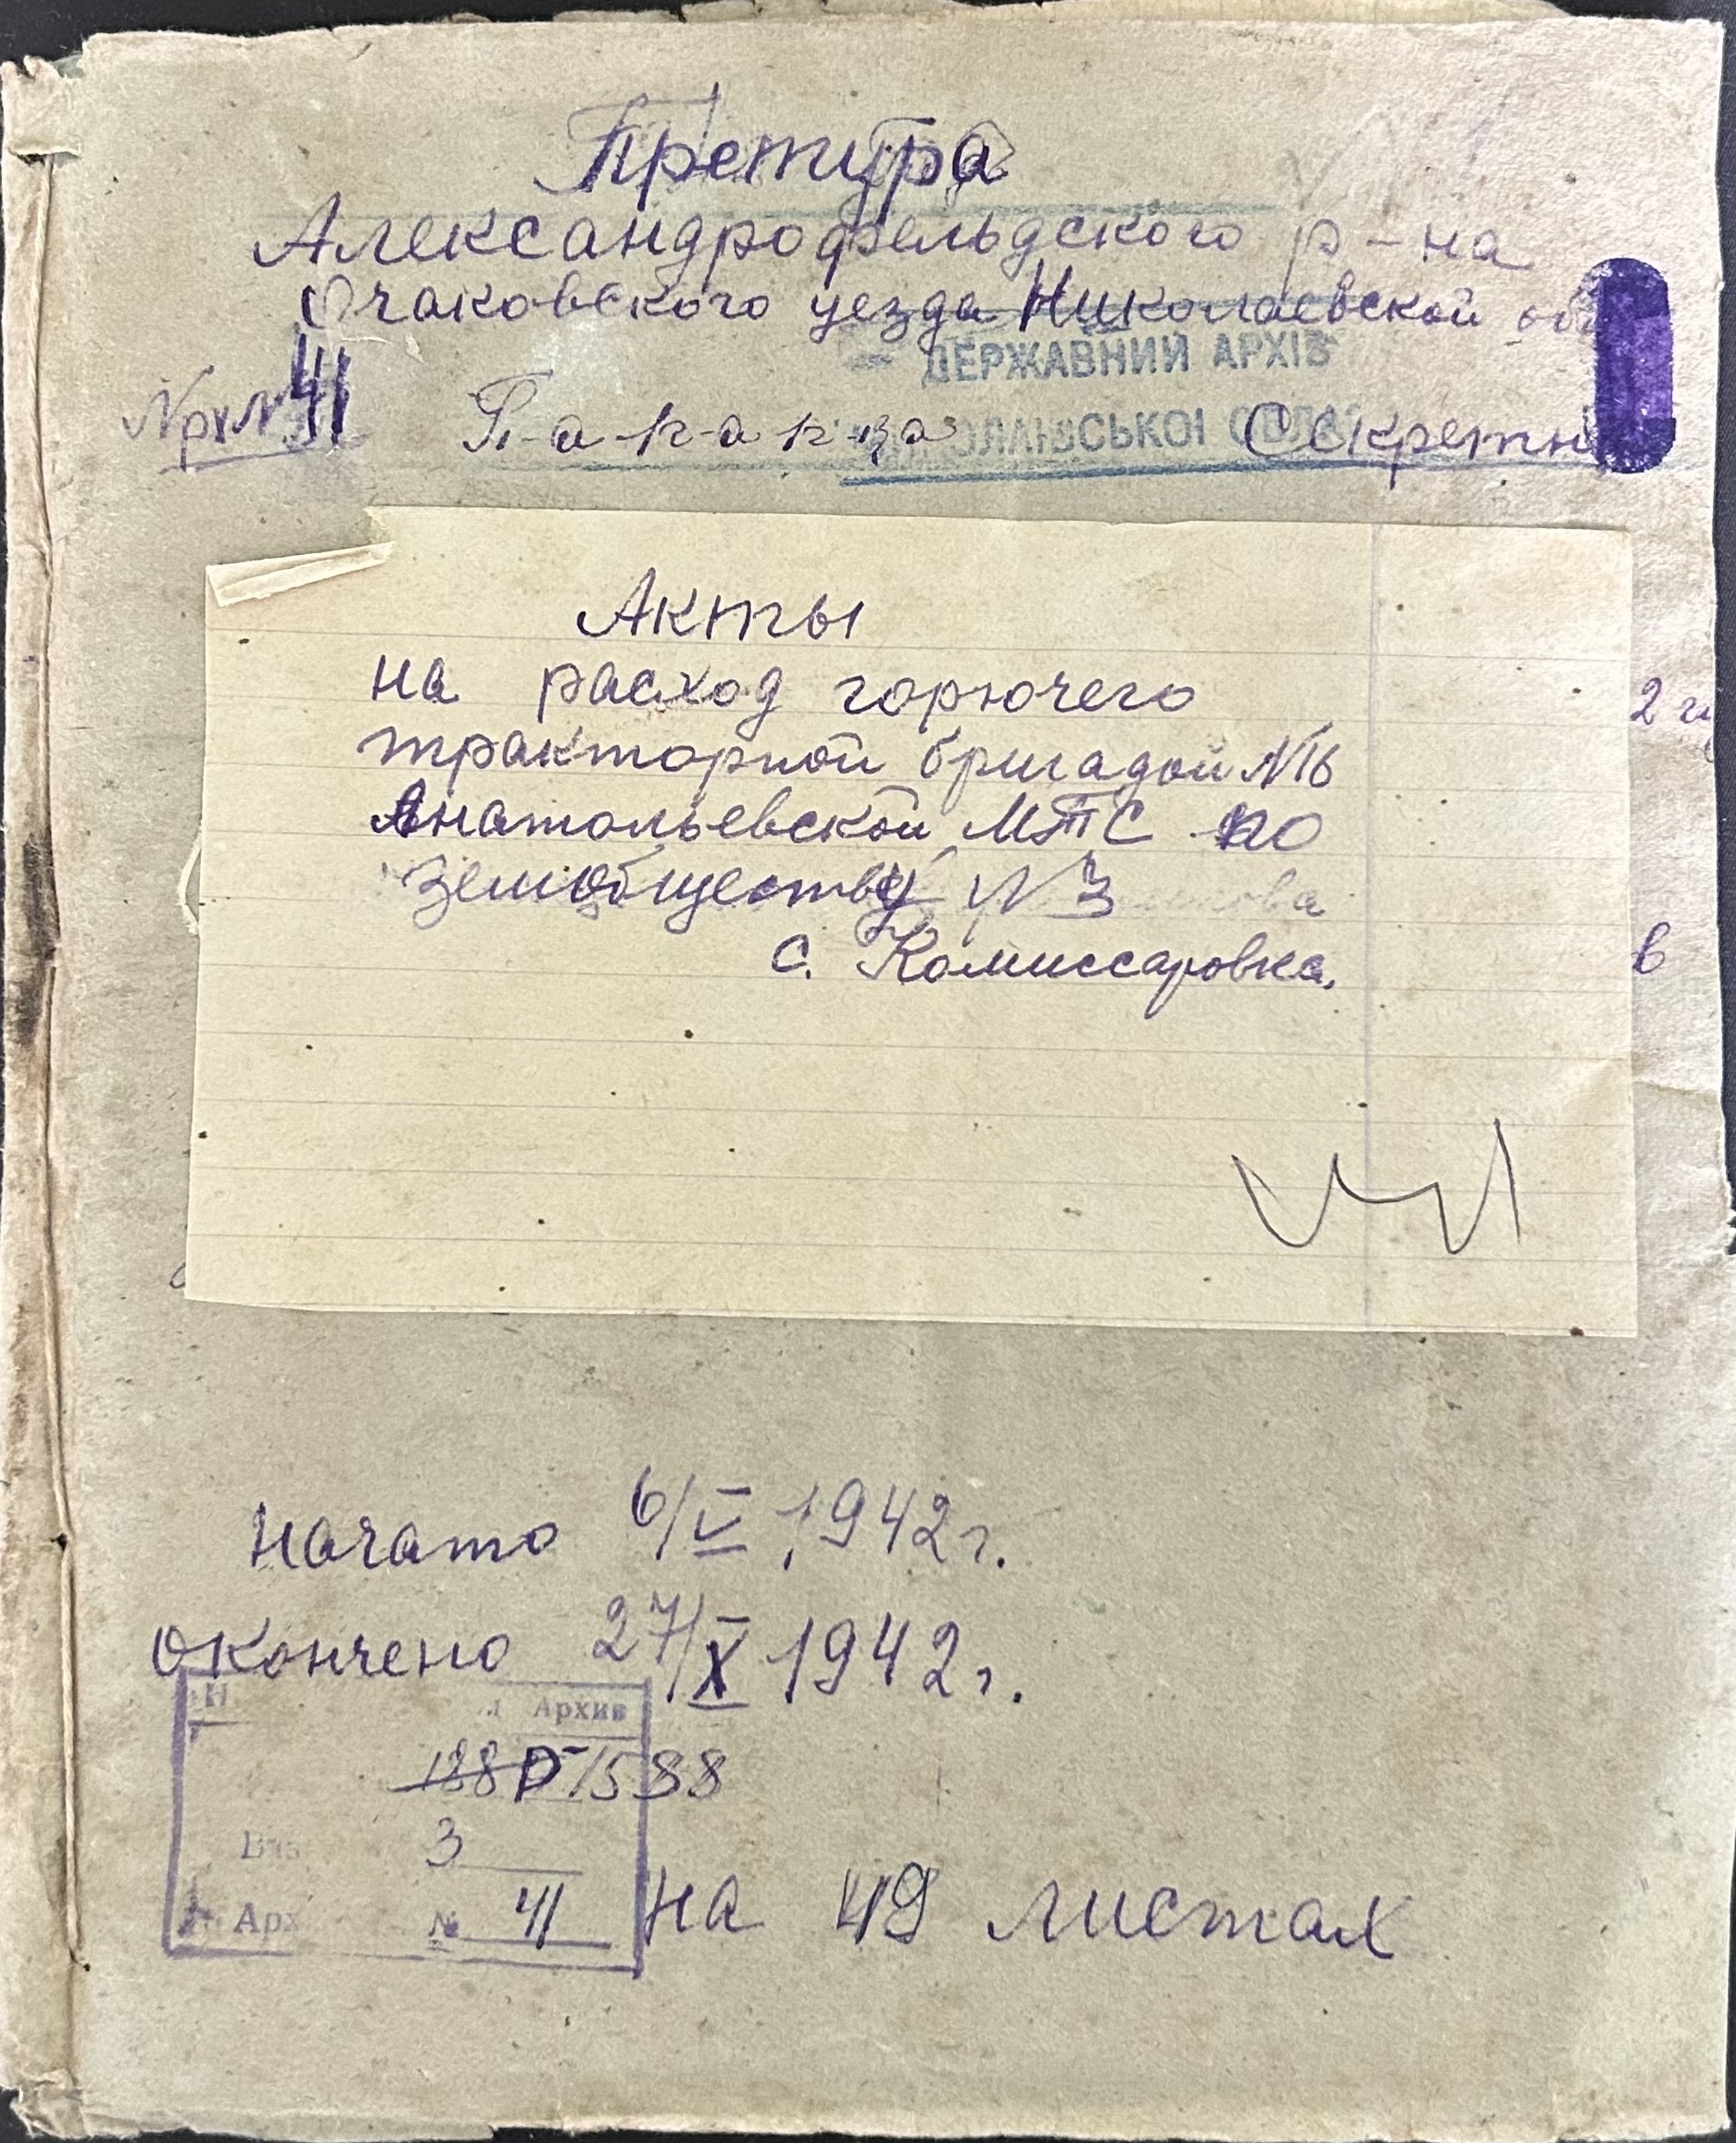 Претура
Александрофельдского р-на
Очаковского уезда Николаевской обл
ДЕРЖАВНИЙ АРХІВ
Арх № 41 П-а-п-к-а Секретн
МИКОЛАЇВСЬКОЇ ОБЛАС
Акты
на расход горючего
тракторной бригадой №16
Анатольевской МТС по
Земобществу № 3
с. Комиссаровка.
2 г
в
Начато 6/V 1942 г.
Окончено 27/X 1942 г.
Архив
188 Р-1588
3
Арх № 41
На 49 листах